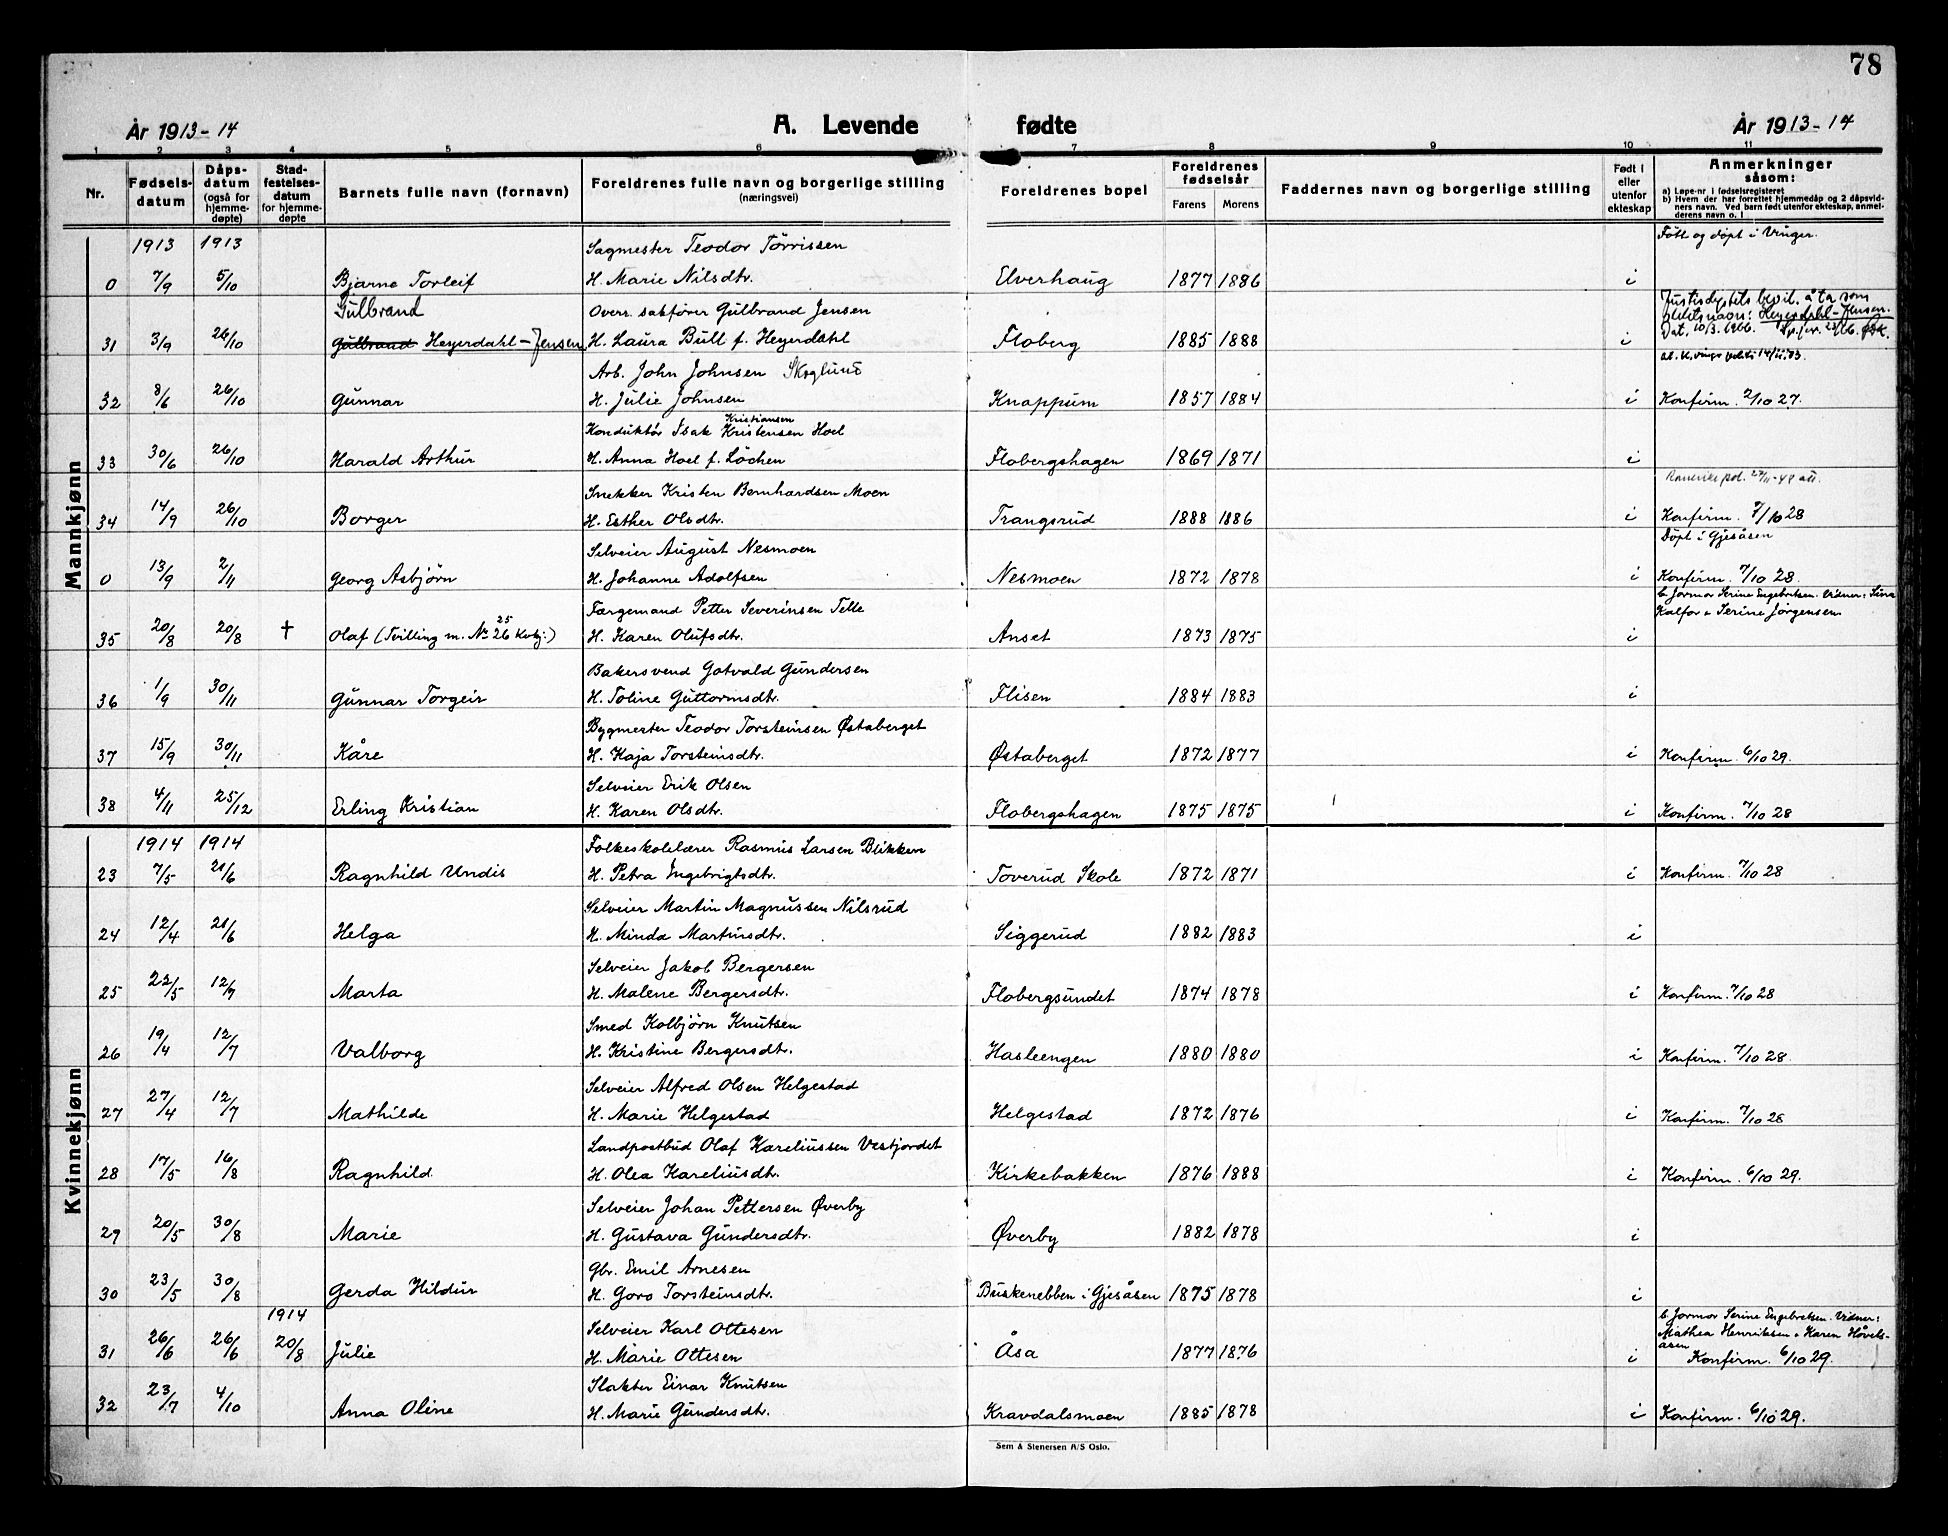 78
År 1913-14
A. Levende fødte
År 1913-14
1 2 3 4 5 6 7 8 9 10 11
Nr. Fødsels-datum Dåps-datum (også for hjemme-døpte) Stad-festelses-datum for hjemme-døpte Barnets fulle navn (fornavn) Foreldrenes fulle navn og borgerlige stilling (næringsvei) Foreldrenes bopel Foreldrenes fødselsår Farens Morens Faddernes navn og borgerlige stilling Født i eller utenfor ekteskap Anmerkninger såsom:
a) Løpe-nr i fødselsregisteret
b) Hvem der har forrettet hjemmedåp og 2 dåpsvid-
ners navn. Ved barn født utenfor ekteskap, anmel-
derens navn o. l
Mannkjønn
1913 1913 Sagmester Teodor Törrissen Født og døpt i Vinger.
0 7/9 5/10 Bjarne Torleif H. Marie Nilsdtr. Elverhaug 1877 1886 i
Gulbrand Overr. sakfører Gulbrand Jensen
31 3/9 26/10 Gulbrand Heyerdahl-Jensen H. Laura Bull f. Heyerdahl Floberg 1885 1888 i
Heyerdahl-Jensen.
Dat. 10/3. 1966.
Arb. John Johnsen Skoglund
32 8/6 26/10 Gunnar H. Julie Johnsen Knappum 1857 1884 i Konfirm. 2/10 27.
Kristiansen
Konduktør Isak Kristensen Hoel
33 30/6 26/10 Harald Arthur H. Anna Hoel f. Löchen Flobergshagen 1869 1871 i
Snekker Kristen Bernhardsen Moen
34 14/9 26/10 Borger H. Esther Olsdtr. Trangsrud 1888 1886 i Konfirm. 7/10 28
Selveier August Nesmoen Döpt i Gjesåsen
0 13/9 2/11 Georg Asbjörn H. Johanne Adolfsen Nesmoen 1872 1878 i Konfirm. 7/10 28.
Færgemand Petter Severinsen Telle b. Jormor Serine Engebretsen. Vidner: Lina
Kalfor & Serine Jörgensen
35 20/8 20/8 † Olaf (Tvilling m. No 26 25 Kvkj.) H. Karen Olufsdtr. Anset 1873 1875 i
Bakersvend Gotvald Gundersen
36 1/9 30/11 Gunnar Torgeir H. Toline Guttormsdtr. Flisen 1884 1883 i
Bygmester Teodor Torsteinsen Østaberget
37 15/9 30/11 Kåre H. Kaja Torsteinsdtr. Østaberget 1872 1877 i Konfirm. 6/10 29.
Selveier Erik Olsen
38 4/11 25/12 Erling Kristian H. Karen Olsdtr. Flobergshagen 1875 1875 i Konfirm. 7/10 28
Kvinnekjønn
1914 1914 Folkeskolelærer Rasmus Larsen Blikken
23 7/5 21/6 Ragnhild Undis H. Petra Ingebrigtsdtr. Toverud Skole 1872 1871 i Konfirm. 7/10 28
Selveier Martin Magnussen Nilsrud
24 12/4 21/6 Helga H. Minda Martinsdtr. Siggerud 1882 1883 i
Selveier Jakob Bergersen
25 22/5 12/7 Marta H. Malene Bergersdtr. Flobergsundet 1874 1878 i Konfirm. 7/10 28
Smed Kolbjörn Knutsen
26 19/4 12/7 Valborg H. Kristine Bergersdtr. Hasleengen 1880 1880 i Konfirm. 7/10 28.
Selveier Alfred Olsen Helgestad
27 27/4 12/7 Mathilde H. Marie Helgestad Helgestad 1872 1876 i Konfirm. 7/10 28
Landpostbud Olaf Kareliussen Vestjordet
28 17/5 16/8 Ragnhild. H. Olea Kareliusdtr. Kirkebakken 1876 1888 i Konfirm. 6/10 29.
Selveier Johan Pettersen Øverby
29 20/5 30/8 Marie H. Gustava Gundersdtr. Øverby 1882 1878 i
Gbr. Emil Arnesen
30 23/5 30/8 Gerda Hildur H. Goro Torsteinsdtr. Buskenebben i Gjesåsen 1875 1878 i
1914 Selveier Karl Ottesen b. Jormor Serine Engebretsen. Vidner:
Mathea Henriksen & Karen Håvels-
åsen
31 26/6 26/6 20/8 Julie H. Marie Ottesen Åsa 1877 1876 i Konfirm. 6/10 29.
Slakter Einar Knutsen
32 23/7 4/10 Anna Oline H. Marie Gundersdtr. Kravdalsmoen 1885 1878 i Konfirm. 6/10 29.
Sem & Stenersen A/S Oslo.